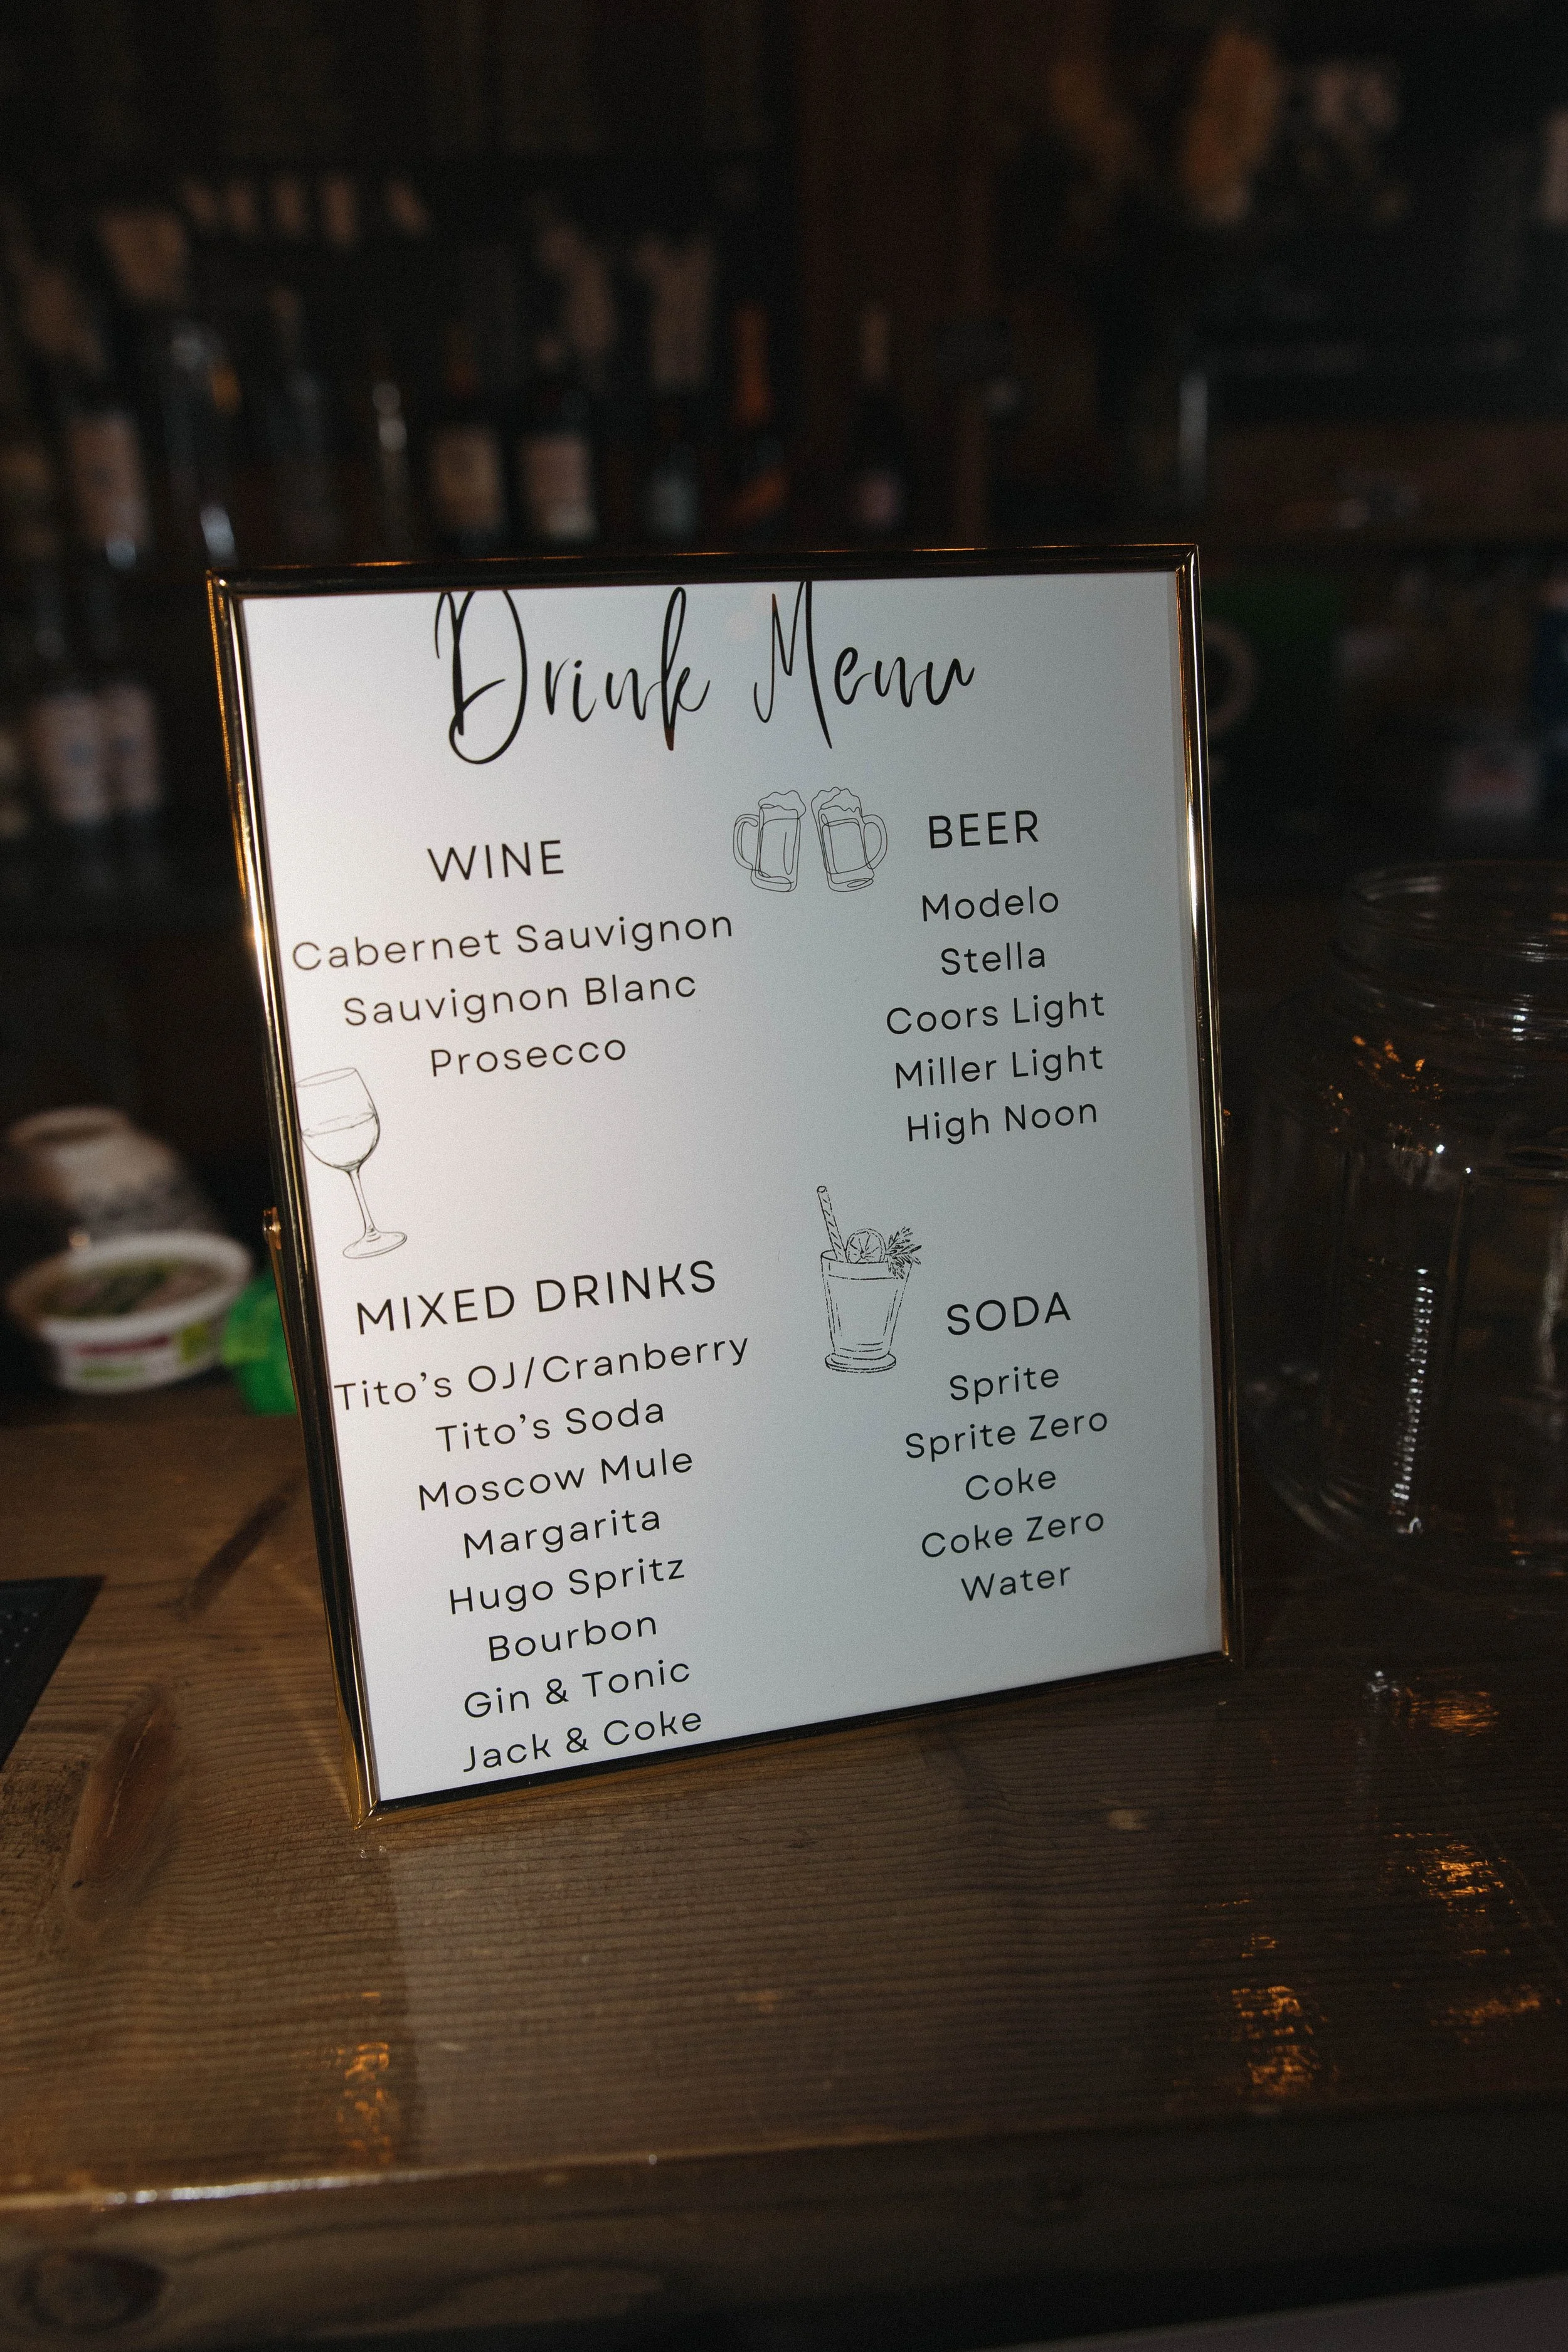 Drink Menu
WINE
Cabernet Sauvignon
Sauvignon Blanc
Prosecco
BEER
Modelo
Stella
Coors Light
Miller Light
High Noon
MIXED DRINKS
Tito's OJ/Cranberry
Tito's Soda
Moscow Mule
Margarita
Hugo Spritz
Bourbon
Gin & Tonic
Jack & Coke
SODA
Sprite
Sprite Zero
Coke
Coke Zero
Water